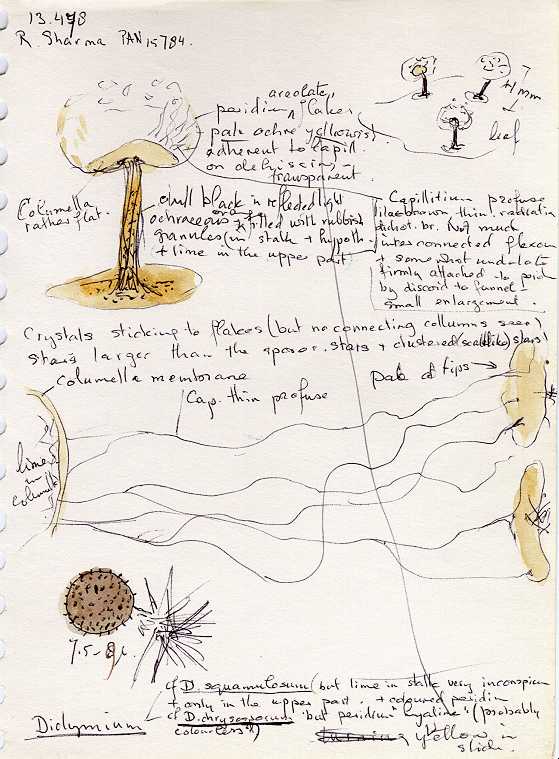 13.498
R. Sharma PAN 15784.
areolate,
peridium flakes
pale ochre yellowish
adherent to capill.
on dehiscing -
transparent.
±1mm
leaf
Columella
rather flat.
dull black in reflected light
ochraceous filled with rubbish
granules (in stalk + hypoth.
+ lime in the upper part
Capillitium profuse
lilac brown thin! radiating
dichot. br. Not much
interconnected flexuous
+ somewhat undulate
firmly attached to perid.
by discoid to funnel
small enlargement.
Crystals sticking to flakes (but no connecting collumns seen)
stars larger than the spores. stars + clustered (scalelike) stars)
columella membrane
Cap. thin profuse
pale at tips
lime
in
columella
7.5-8µ.
cf D. squamulosum (but lime in stalk very inconspicu
+ only in the upper part. + coloured peridium
Didymium
cf D. chrysosporum but peridium "hyaline" (probably
colourless")
yellow in
slide.